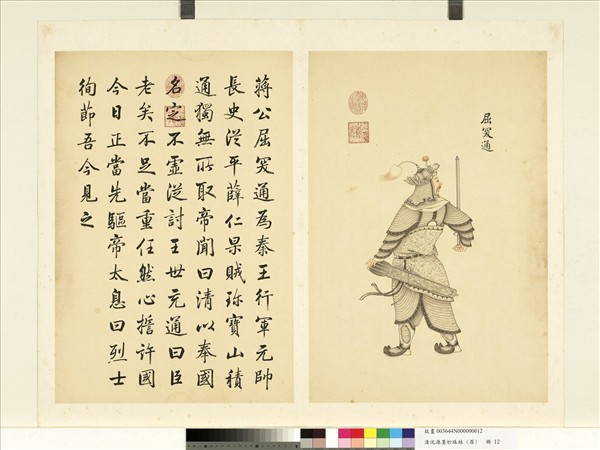 屈突通
蔣公屈突通為秦王行軍元帥
長史從平薛仁杲賊珍寶山積
通獨無所取帝聞曰清以奉國
名定不虛從討王世充通曰臣
老矣不足當重任然心誓許國
今日正當先驅帝太息曰烈士
徇節吾今見之
故畫 003644N000000012
清沈源墨妙珠林 冊 12